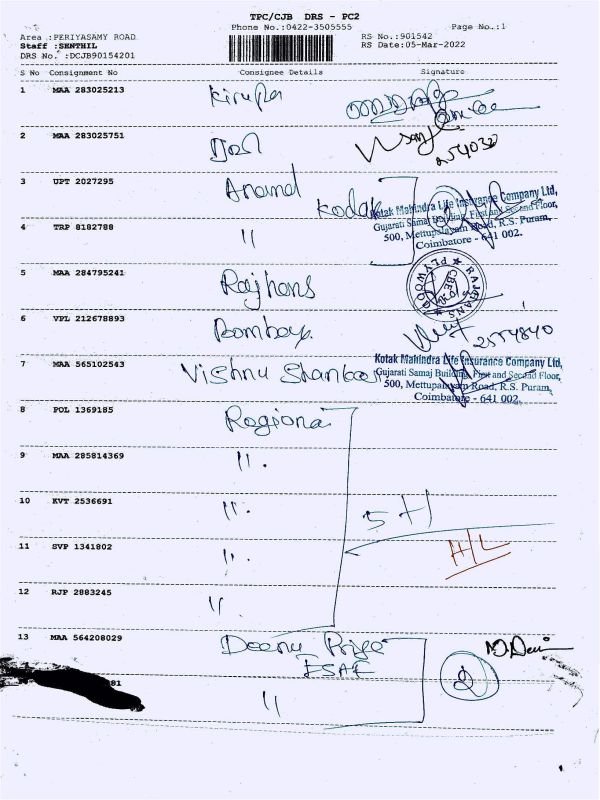 TPC/CJB DRS - PC2
Phone No.:0422-3505555
Page No.:1
Area :PERIYASAMY ROAD
RS No.:901542
Staff :SENTHIL
RS Date:05-Mar-2022
DRS No. :DCJB90154201
S No Consignment No Consignee Details Signature
1 MAA 283025213 Kirupa
2 MAA 283025751
3 UPT 2027295 Anand
Kodak
Kotak Mahindra Life Insurance Company Ltd,
Gujarati Samaj Building, First and Second Floor,
500, Mettupalayam Road, R.S. Puram,
Coimbatore - 641 002.
4 TRP 8182788 "
5 MAA 284795241 Rajhans
RAJHANS PLYWOOD
6 VPL 212678893 Bombay
7 MAA 565102543 Vishnu
Kotak Mahindra Life Insurance Company Ltd,
Gujarati Samaj Building, First and Second Floor,
500, Mettupalayam Road, R.S. Puram,
Coimbatore - 641 002.
8 POL 1369185 Regional
9 MAA 285814369 ".
10 KVT 2536691 ".
11 SVP 1341802 ".
H/L
12 RJP 2883245 ".
13 MAA 564208029
ESAF
"